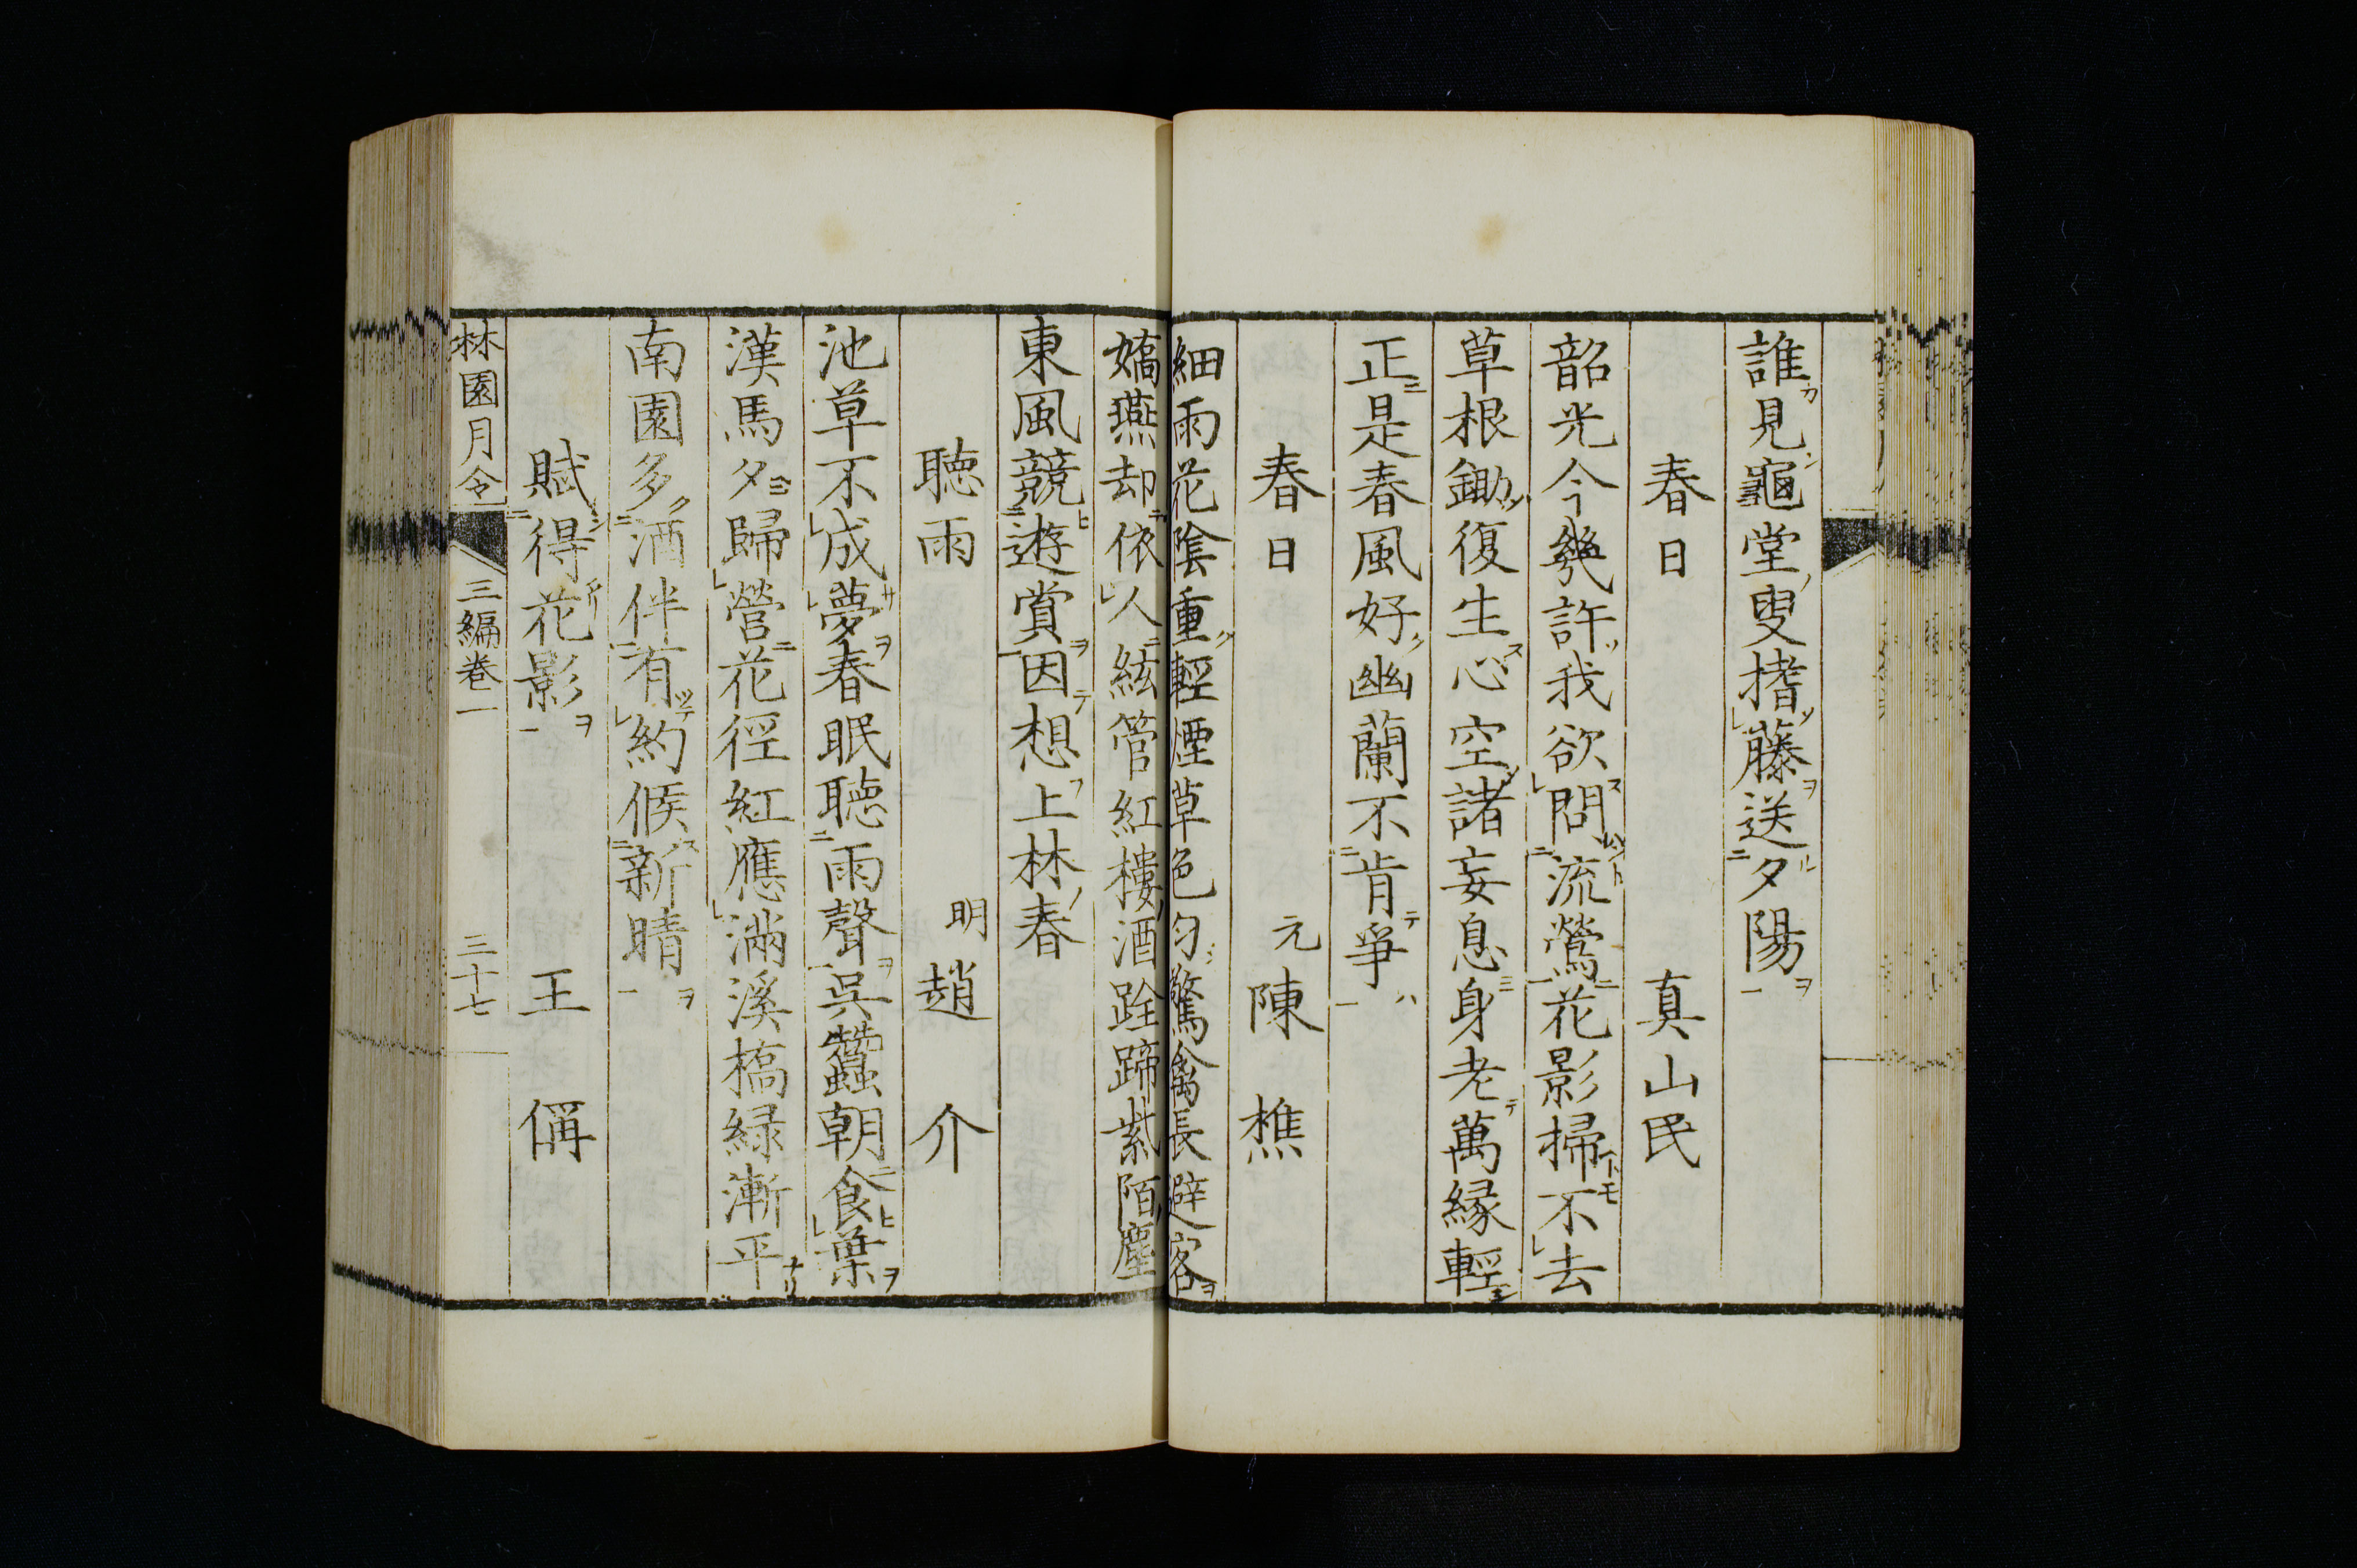 誰見龜堂叟搘藤送夕陽
春日　真山民
韶光今幾許我欲問流鶯花影掃不去
草根鋤復生心空諸妄息身老萬緣輕
正是春風好幽蘭不肯爭
春日　元陳樵
細雨花陰重輕煙草色勻驚禽長避客
嬌燕却依人絃管紅樓酒跧蹄紫陌塵
東風競遊賞因想上林春
聽雨　明趙介
池草不成夢春眠聽雨聲吳蠶朝食葉
漢馬夕歸營花徑紅應滿溪橋綠漸平
南園多酒伴有約候新晴
賦得花影　王偁
林園月令　三編卷一　三十七